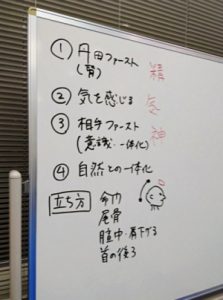 ① 丹田ファースト 精
(腎)
② 気を感じる 気
③ 相手ファースト 神
(意識 一体化)
④ 自然との一体化
立ち方 命門
尾骨
膻中 肩下げる
首の後ろ